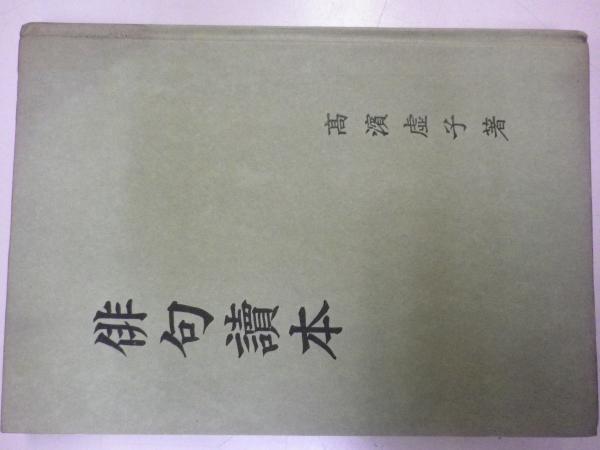 俳句讀本
高濱虚子著